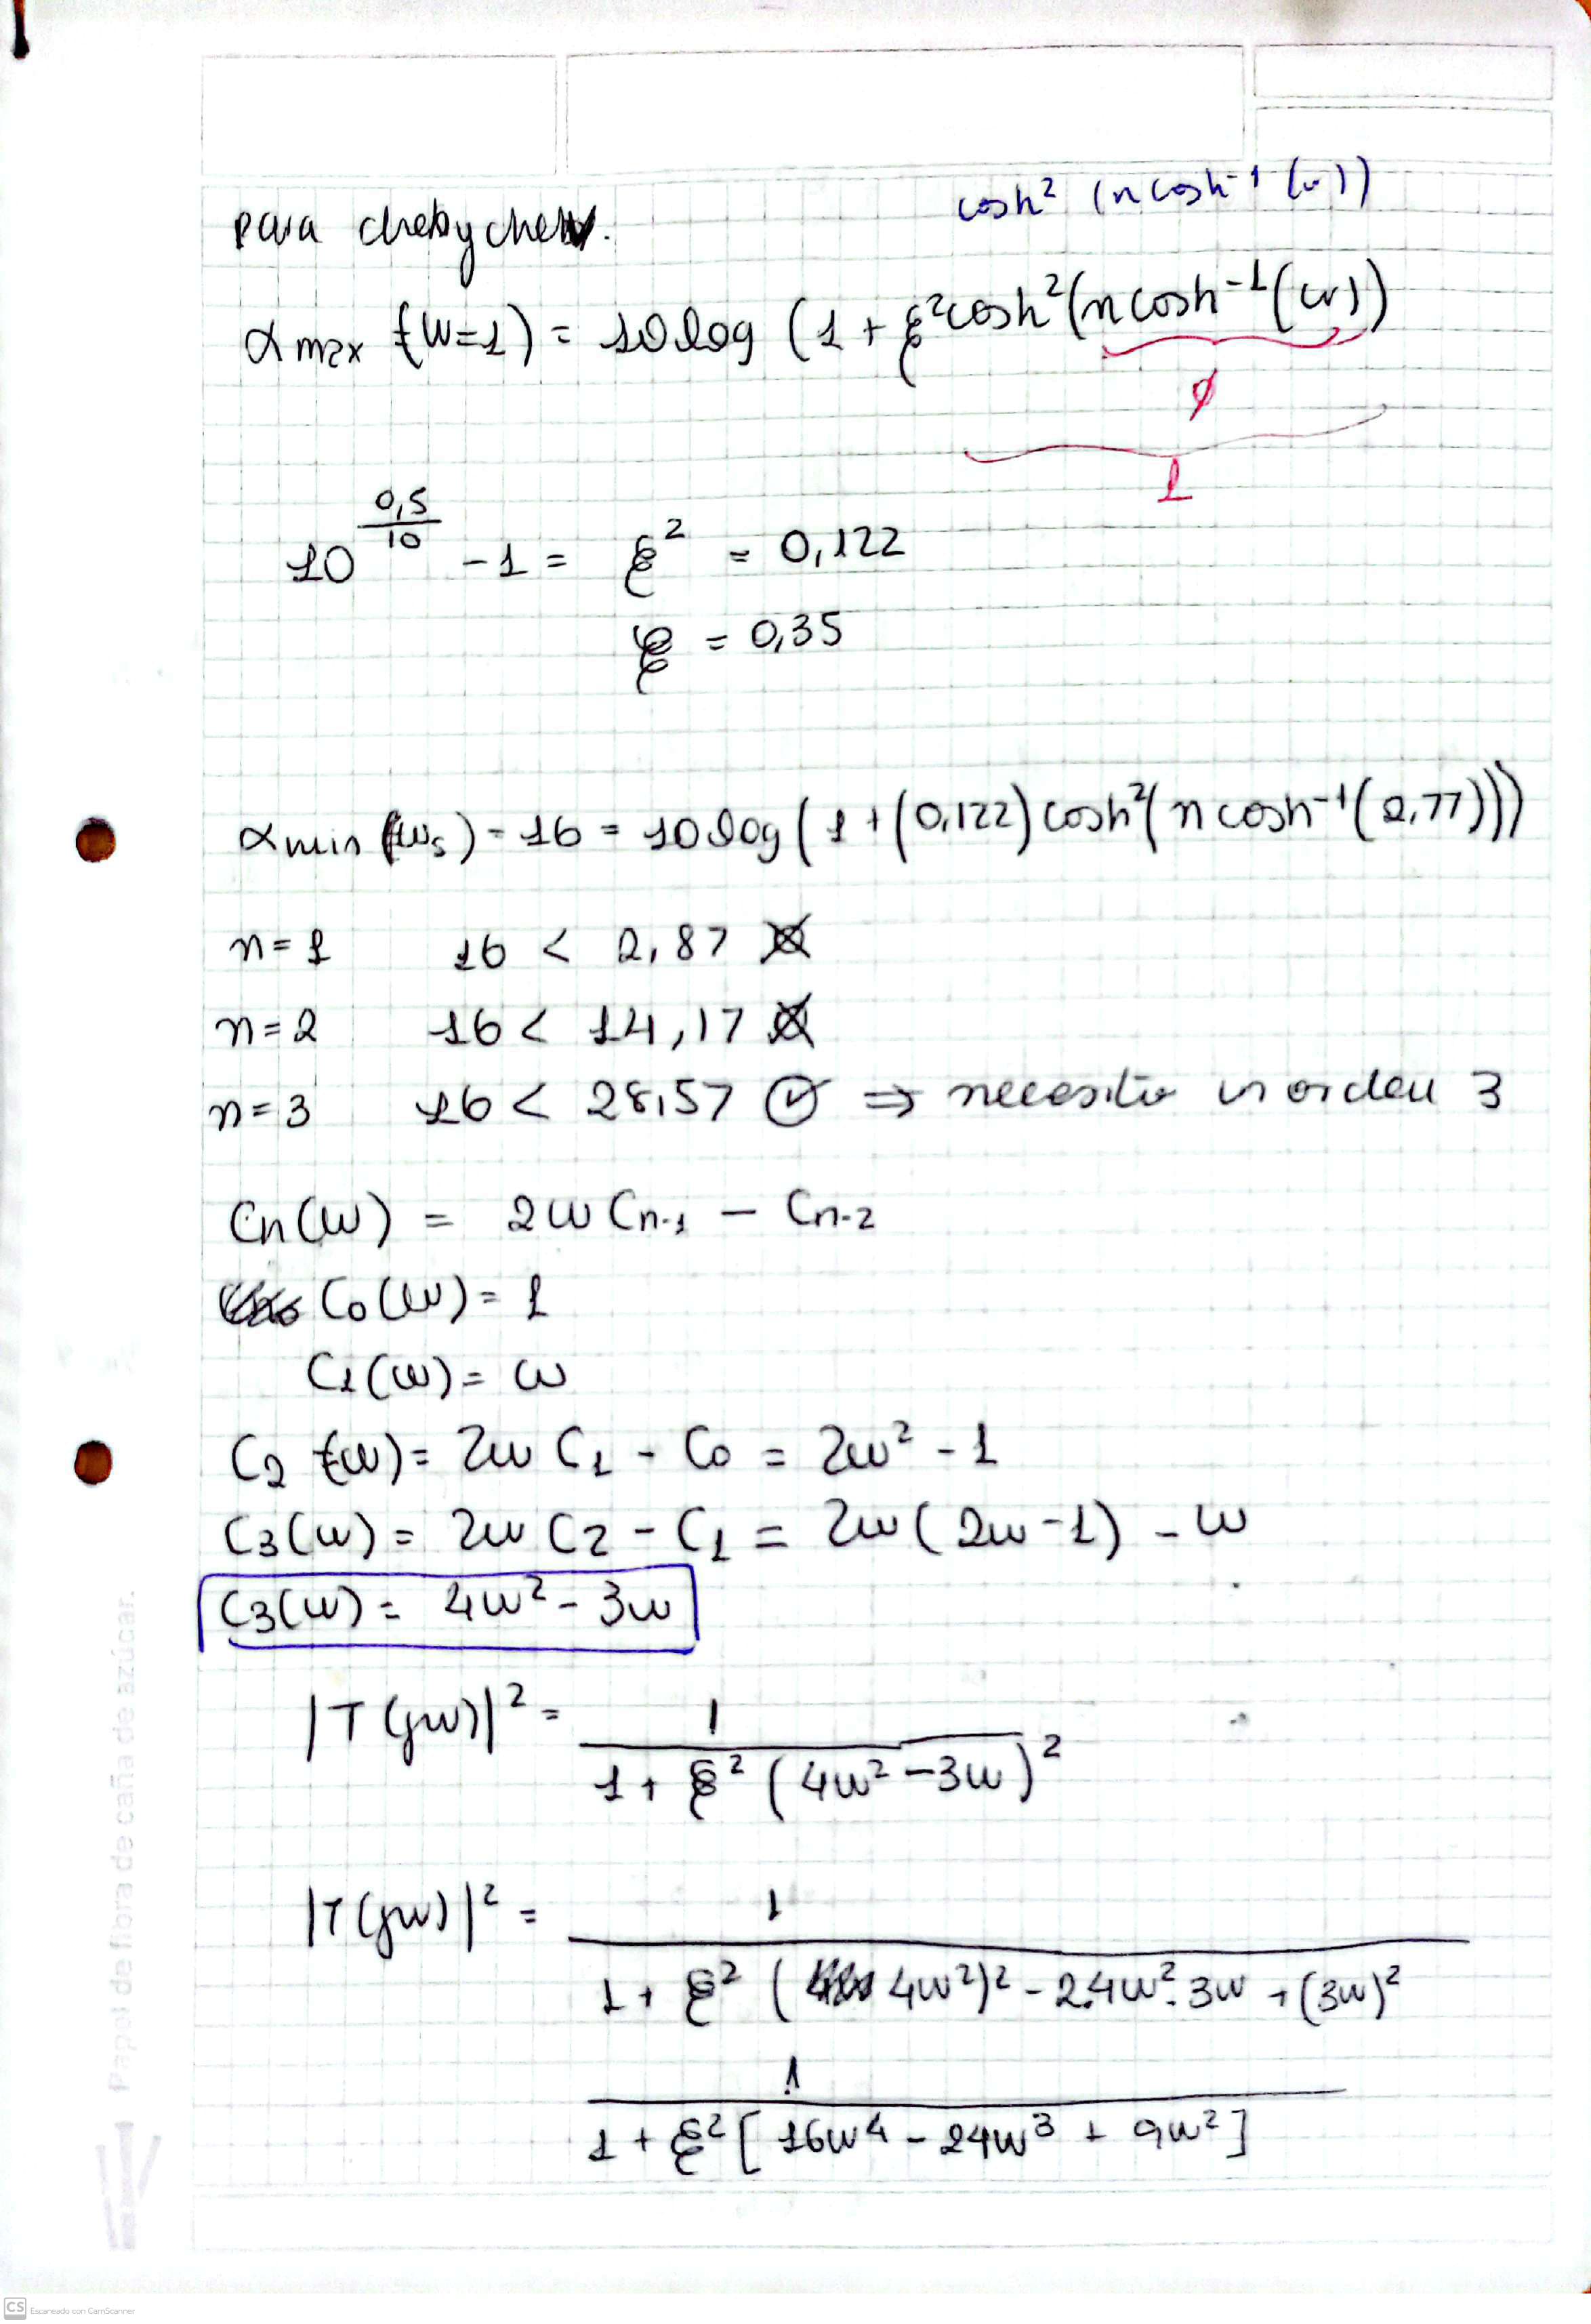 cosh² (n cosh⁻¹ (w))
para chebychev.
αmax (w=1) = 10 log (1 + ξ² cosh² (n cosh⁻¹ (w))
∅
1
10^(0,5/10) - 1 = ξ² = 0,122
ξ = 0,35
αmin (ws) = 16 = 10 log (1 + (0,122) cosh² (n cosh⁻¹ (2,77)))
n = 1 16 < 2,87 ☒
n = 2 16 < 14,17 ☒
n = 3 16 < 28,57 ✓ ⇒ necesito un orden 3
Cn(w) = 2w Cn-1 - Cn-2
C0(w) = 1
C1(w) = w
C2(w) = 2w C1 - C0 = 2w² - 1
C3(w) = 2w C2 - C1 = 2w (2w - 1) - w
C3(w) = 4w² - 3w
|T(jw)|² = 1 / (1 + ξ² (4w² - 3w)²
|T(jw)|² = 1 / (1 + ξ² (4w²)² - 2.4w².3w + (3w)²
1 / (1 + ξ² [16w⁴ - 24w³ + 9w²]
Papel de fibra de caña de azúcar.
CS Escaneado con CamScanner